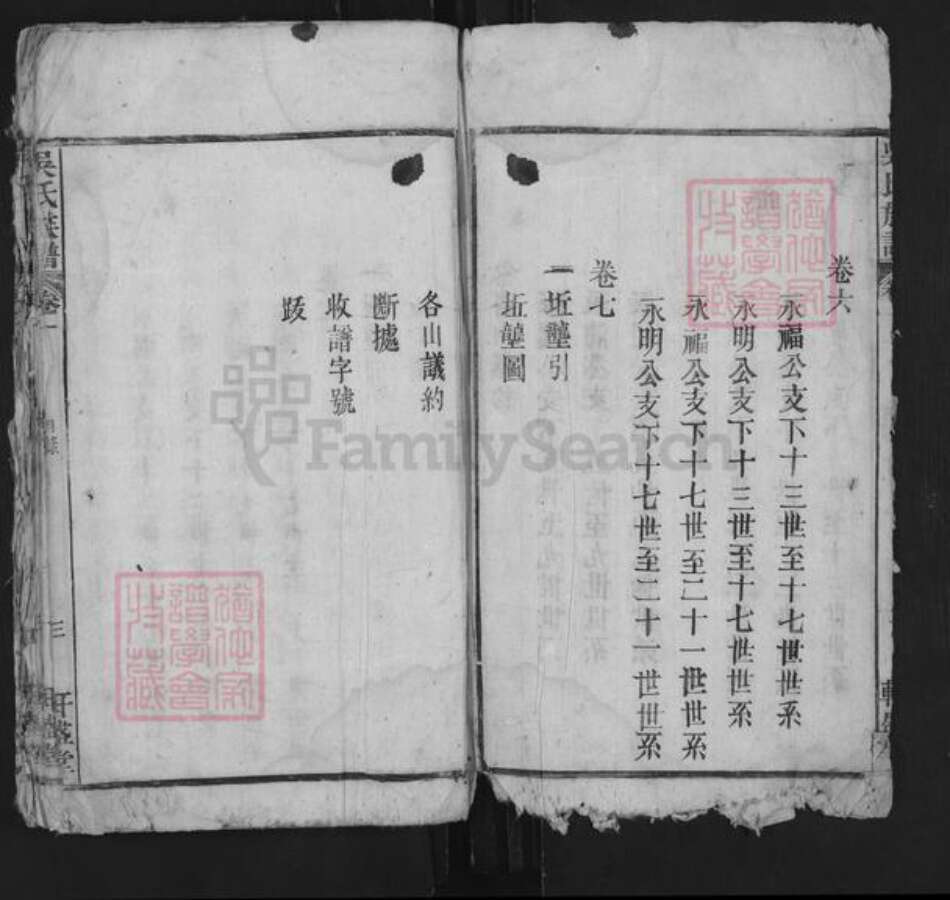 卷六
永福公支下十三世至十七世世系
永明公支下十三世至十七世世系
永福公支下十七世至二十一世世系
永明公支下十七世至二十一世世系
卷七
坵壟引
坵壟圖
各山議約
斷據
收譜字號
跋
吳氏族譜
卷一
目錄
三
FamilySearch